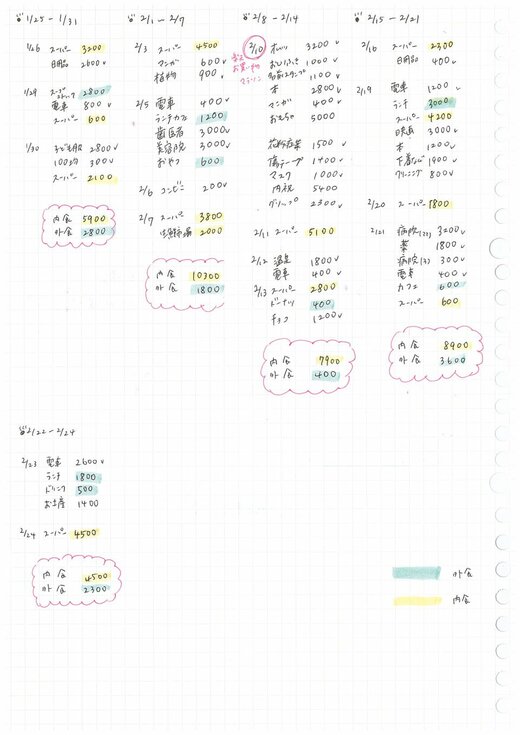 1/25 - 1/31
1/26 スーパー 3200
日用品 2600
1/29 2800
電車 800
スーパー 600
1/30 2800
100均 300
スーパー 2100
内食 5900
外食 2800
2/1 - 2/7
2/3 スーパー 4500
マンガ 600
植物 900
2/5 電車 400
ランチカフェ 1200
歯医者 3000
美容院 2000
おやつ 600
2/6 コンビニ 200
2/7 スーパー 3800
生鮮市場 2000
内食 10300
外食 1800
2/8 - 2/14
2/10 3200
1000
1100
本 2800
マンガ 400
おもちゃ 5000
花粉症薬 1500
傷テープ 1400
マスク 1000
内祝 5400
グリップ 2300
2/11 スーパー 5100
2/12 温泉 1800
電車 400
2/13 スーパー 2800
ドーナツ 400
チョコ 1200
内食 7900
外食 400
2/15 - 2/21
2/16 スーパー 2300
日用品 400
2/19 電車 1200
ランチ 3000
スーパー 4200
映画 3000
本 1200
下着など 1900
クリーニング 800
2/20 スーパー 1800
2/21 病院 3200
薬 1800
病院 300
電車 400
カフェ 600
スーパー 600
内食 8900
外食 3600
2/22 - 2/24
2/23 電車 2600
ランチ 1800
ドリンク 500
お土産 1400
2/24 スーパー 4500
内食 4500
外食 2300
外食
内食